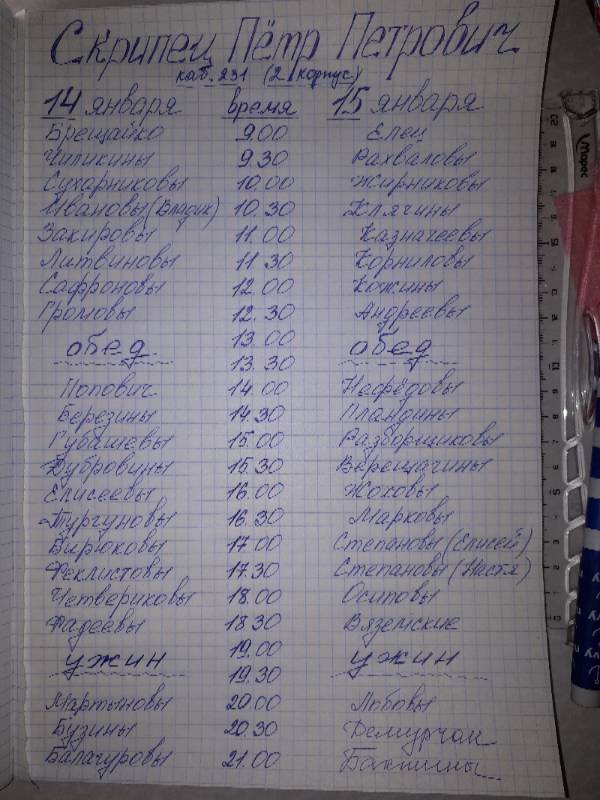 Скрипец Пётр Петрович
каб. 231 (2 корпус)
14 января время 15 января
Брещайко 9.00 Елец
Чиликины 9.30 Рахваловы
Сухарниковы 10.00 Жирниковы
Ивановы (Владик) 10.30 Клячины
Закировы 11.00 Казначеевы
Литвиновы 11 30 Корниловы
Сафроновы 12.00 Кожины
Громовы 12.30 Андреевы
обед 13.00 обед
13.30
Попович 14.00 Нефёдовы
Березины 14.30 Пландины
Губашевы 15.00 Разборщиковы
Дубровины 15.30 Верещагины
Елисеевы 16.00 Жоховы
Тургуновы 16.30 Марковы
Бирюковы 17.00 Степановы (Елисей)
Феклистовы 17.30 Степановы (Настя)
Четвериковы 18.00 Осиповы
Фадеевы 18.30 Вяземские
ужин 19.00 ужин
19.30
Мартыновы 20.00 Лобовы
Бузины 20.30 Демурчан
Балагуровы 21.00